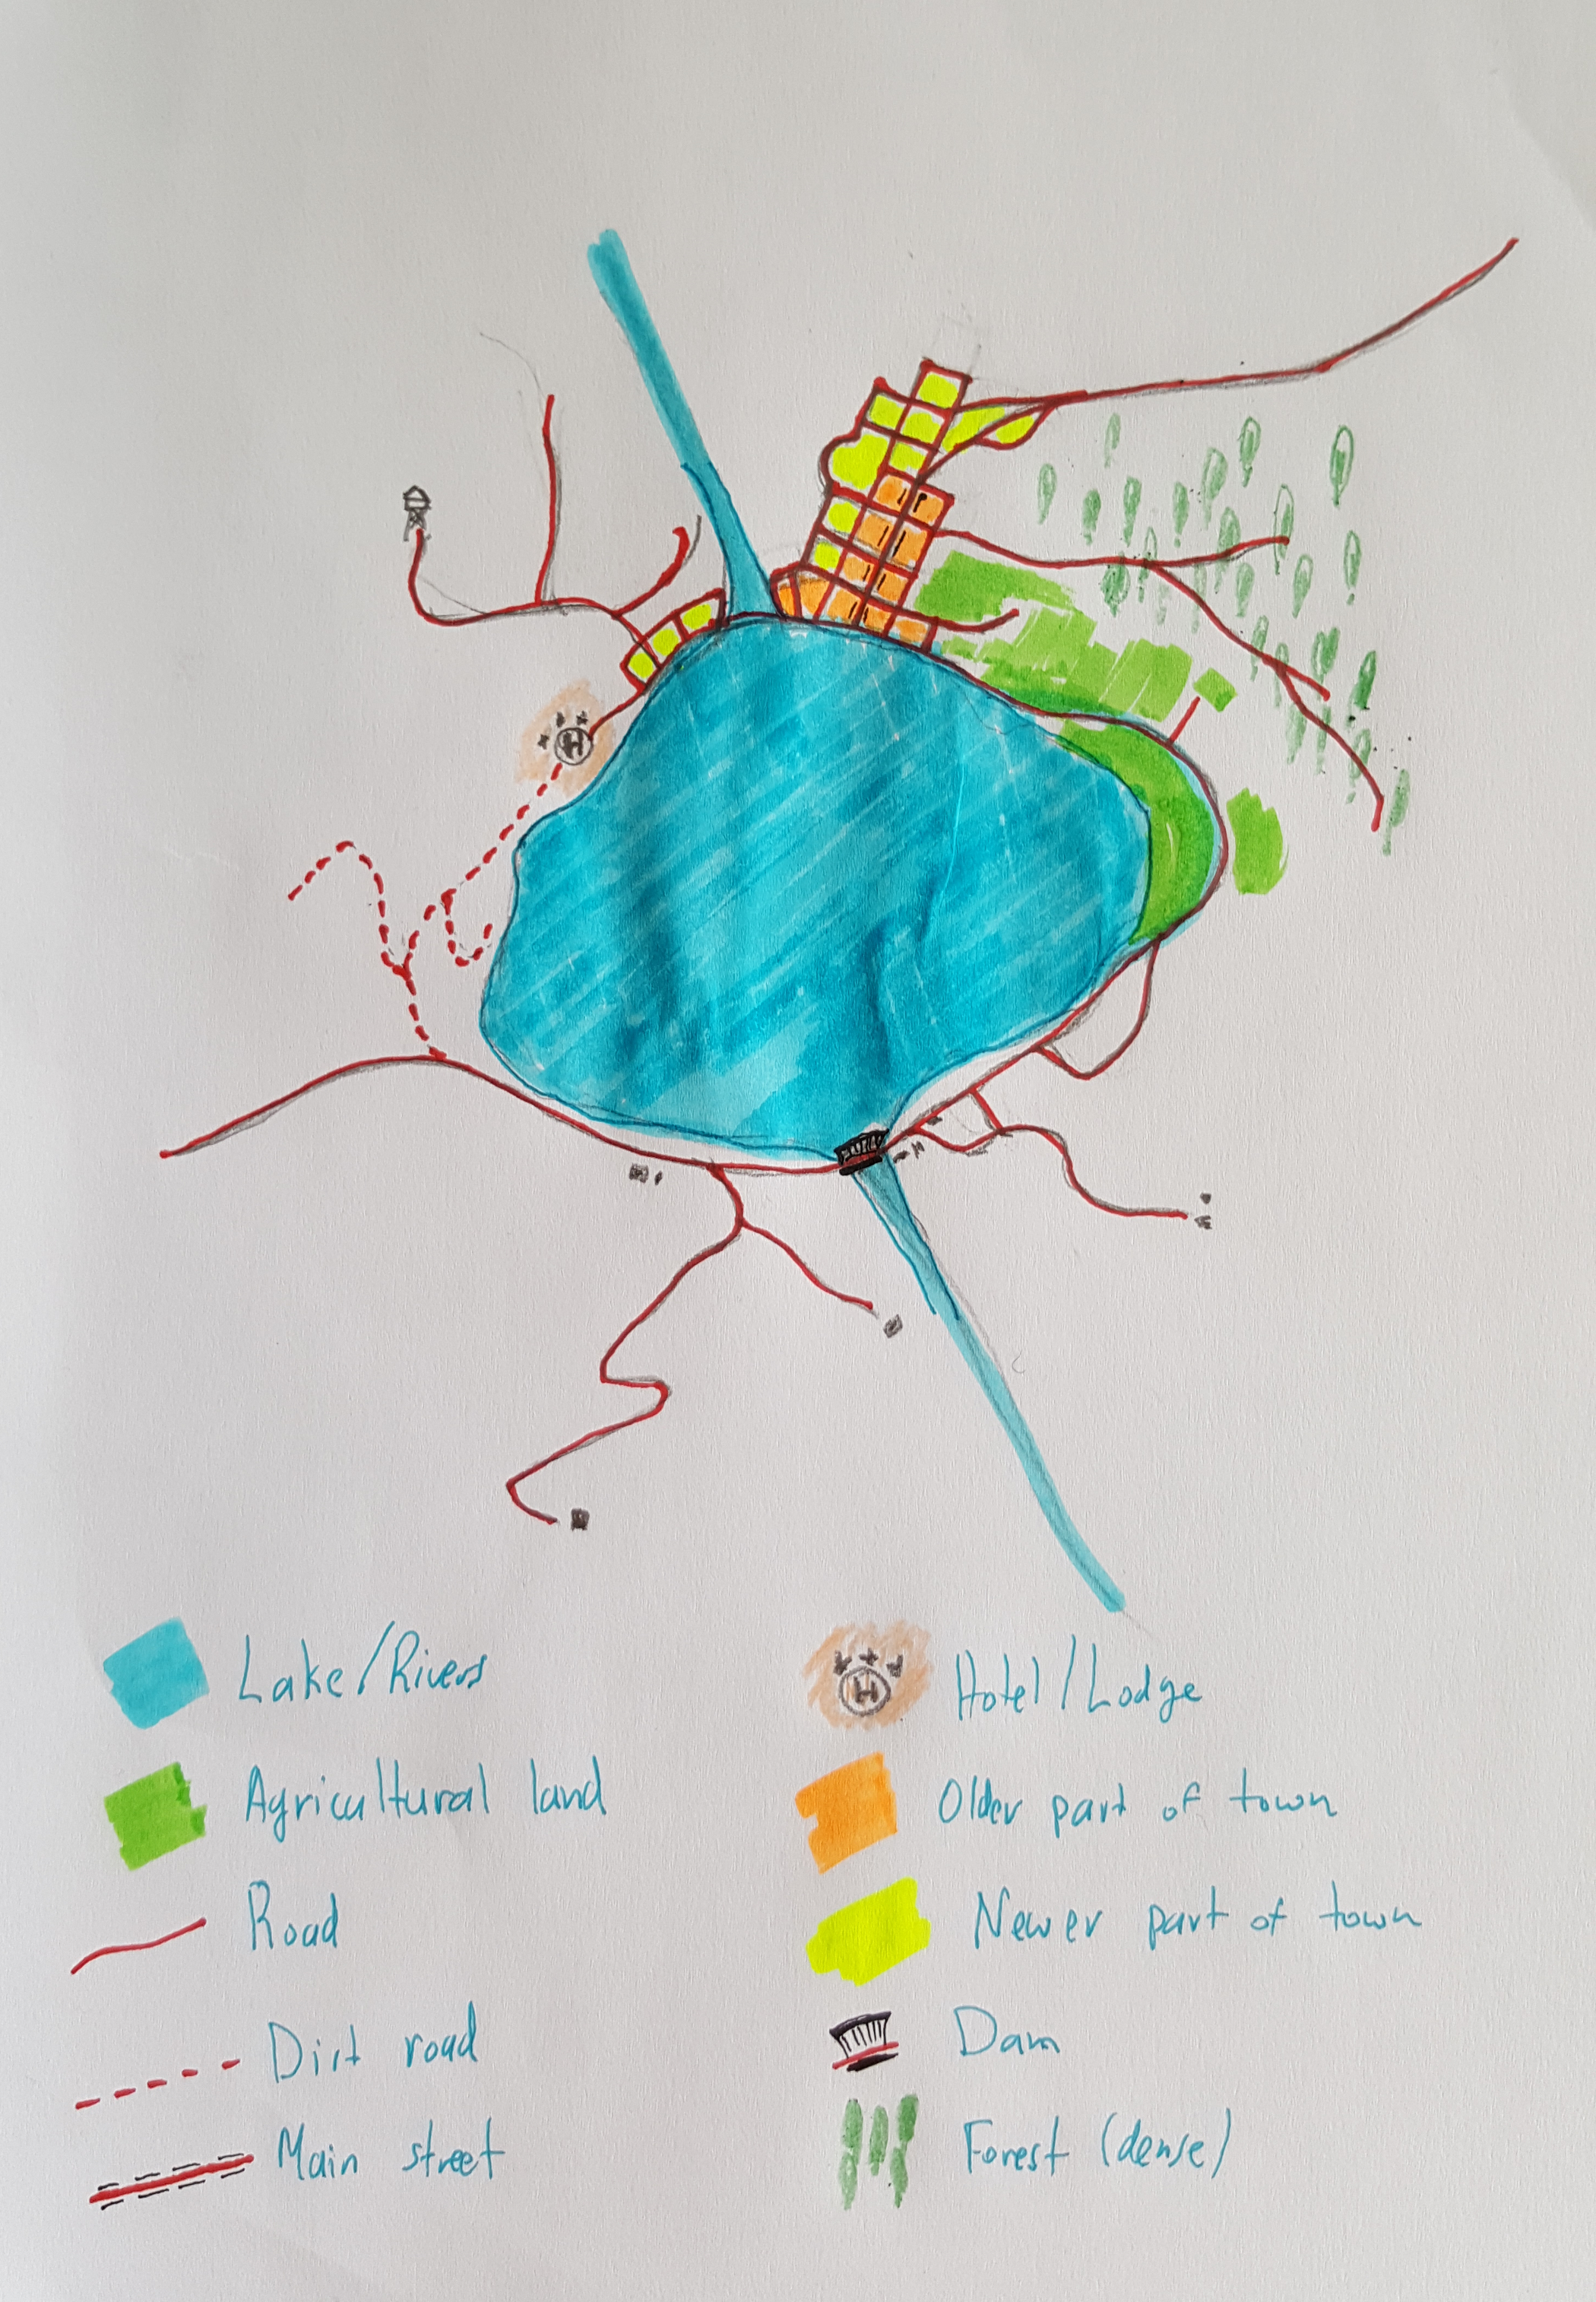 H
Lake/Rivers
Agricultural land
Road
Dirt road
Main street
H
Hotel/Lodge
Older part of town
Newer part of town
Dam
Forest (dense)